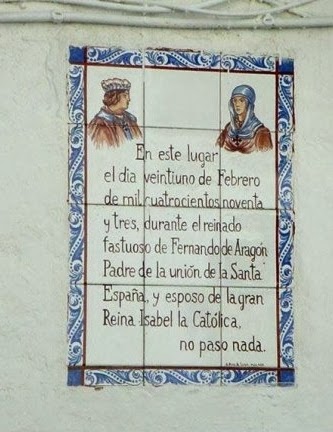 En este lugar
el dia veintiuno de Febrero
de mil cuatrocientos noventa
y tres, durante el reinado
fastuoso de Fernando de Aragón
Padre de la unión de la Santa
España, y esposo de la gran
Reina Isabel la Católica,
no paso nada.